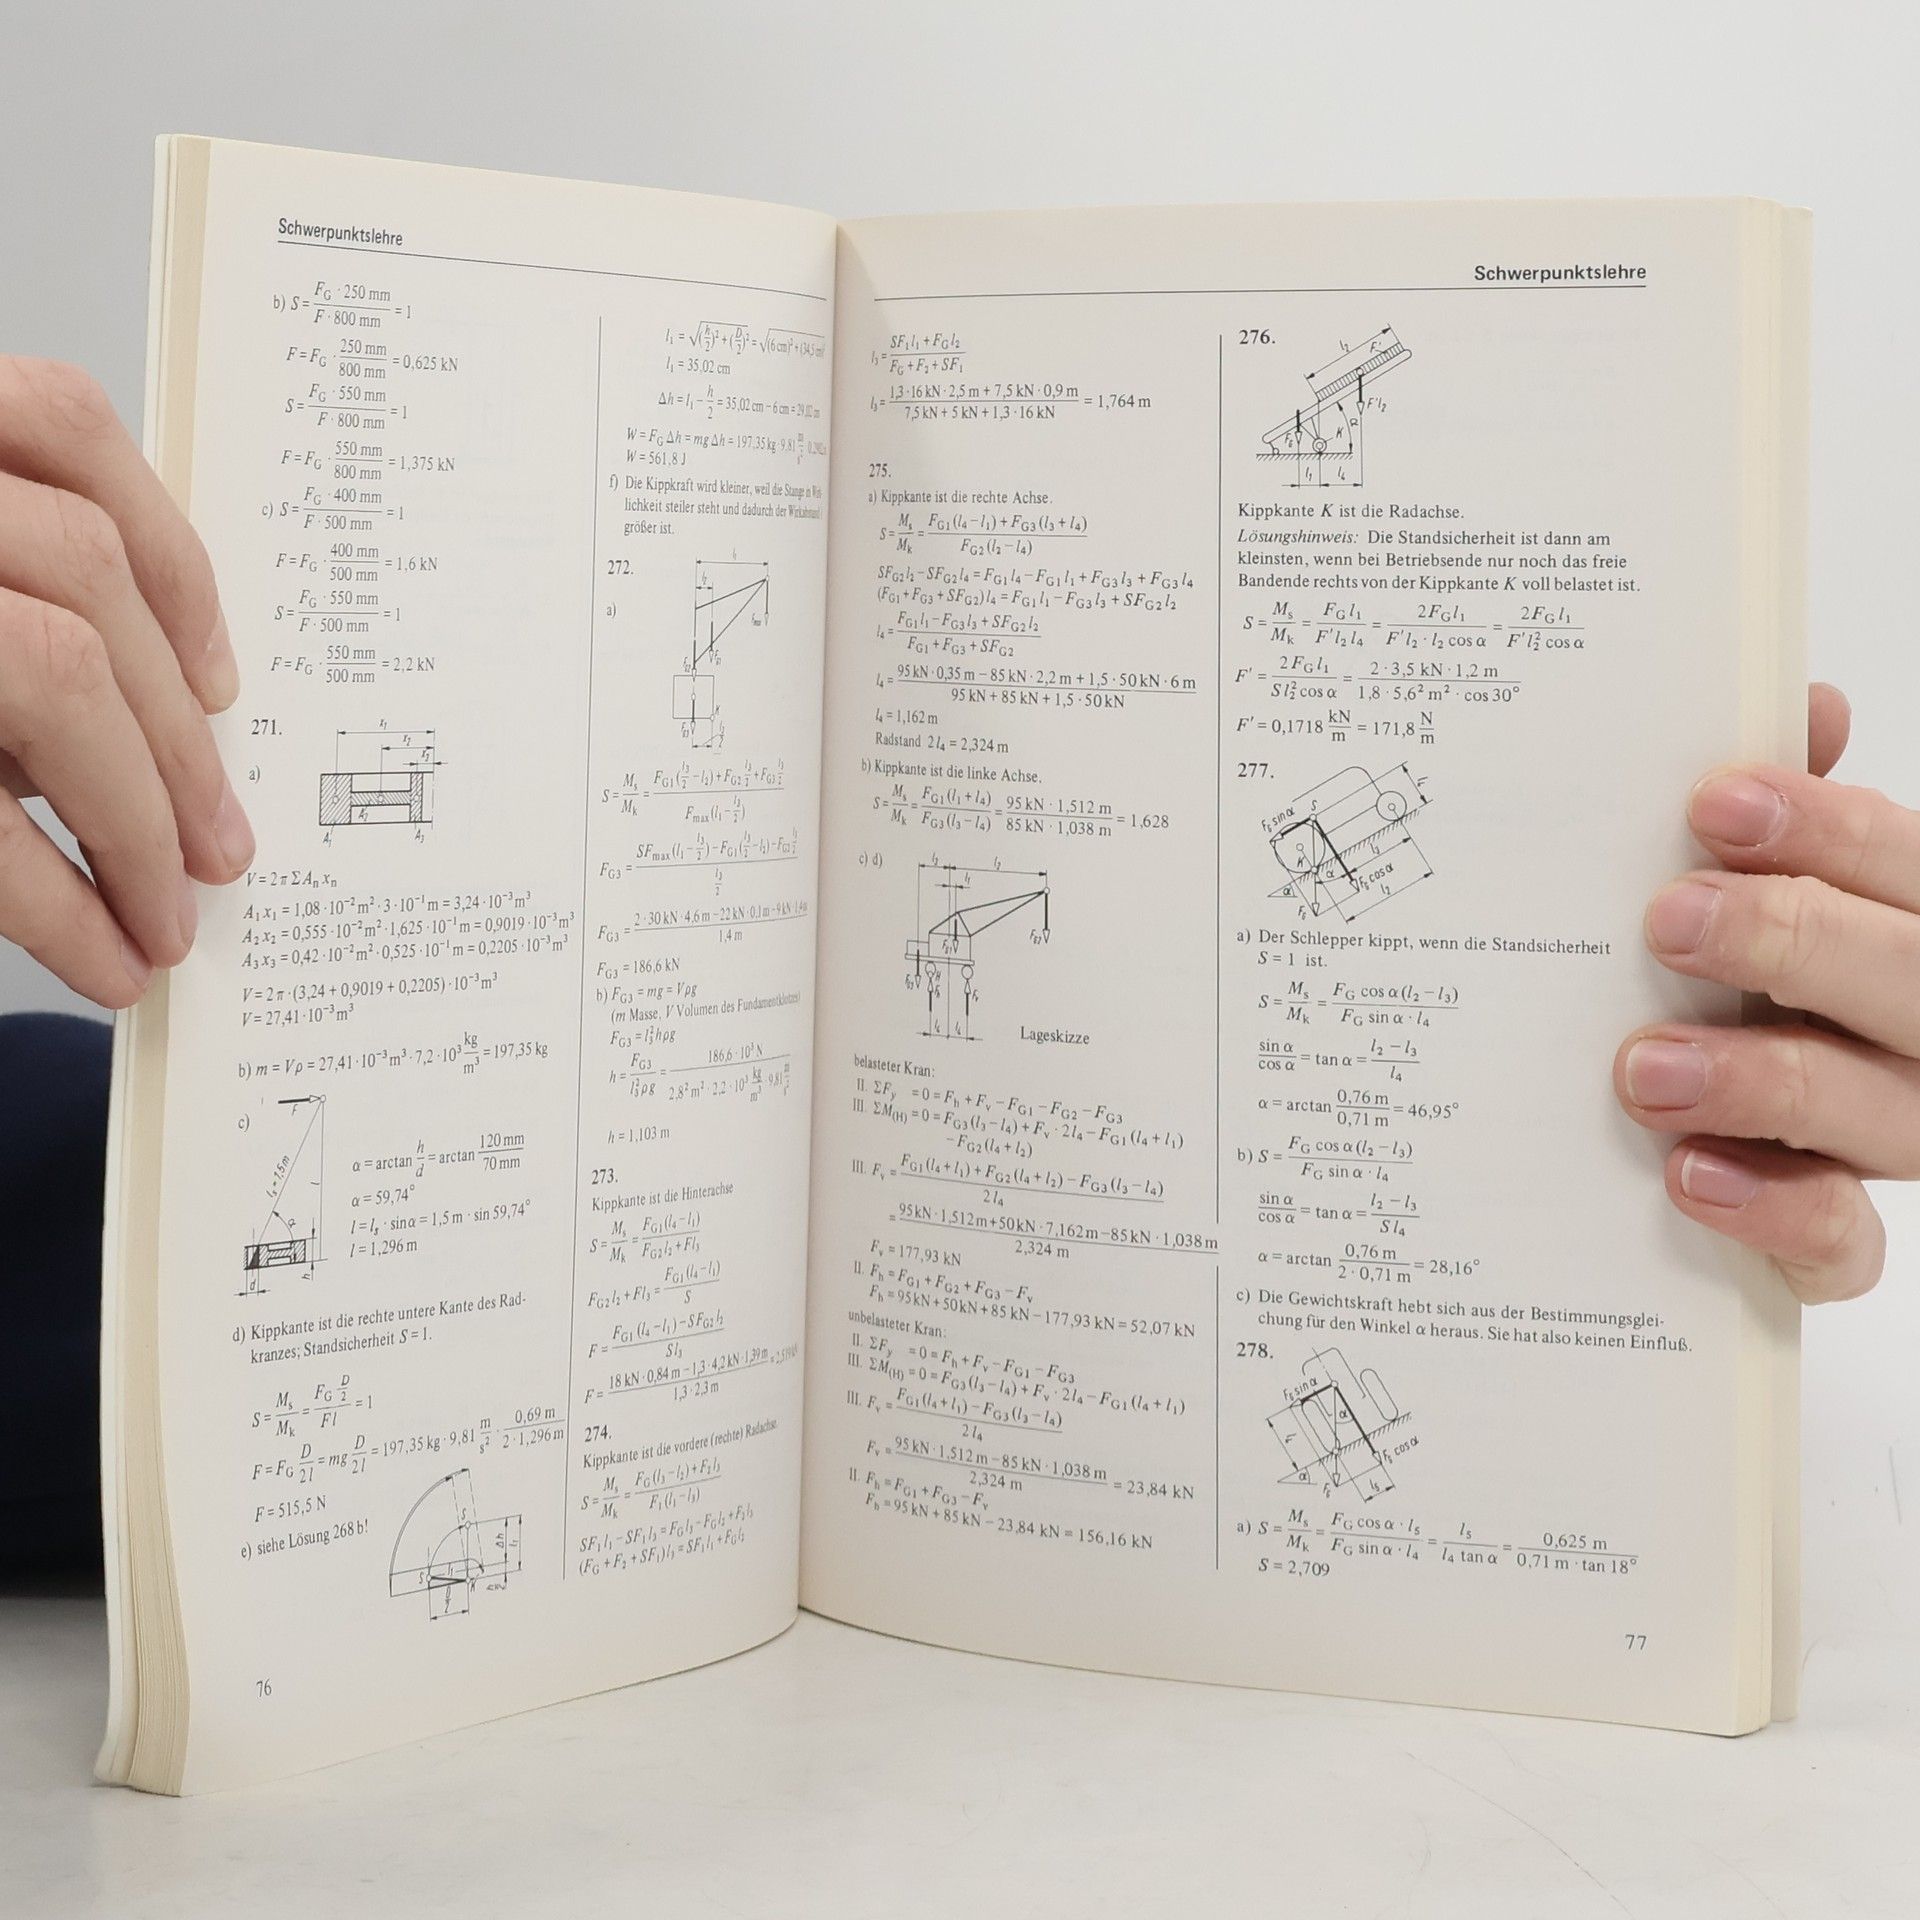 Schwerpunktslehre
b) S = (F_G · 250 mm)/(F · 800 mm) = 1
F = F_G · 250 mm/800 mm = 0,625 kN
S = (F_G · 550 mm)/(F · 800 mm) = 1
F = F_G · 550 mm/800 mm = 1,375 kN
c) S = (F_G · 400 mm)/(F · 500 mm) = 1
F = F_G · 400 mm/500 mm = 1,6 kN
S = (F_G · 550 mm)/(F · 500 mm) = 1
F = F_G · 550 mm/500 mm = 2,2 kN
271.
a)
x₁
x₂
x₃
A₁
A₂
A₃
V = 2π Σ Aₙ xₙ
A₁x₁ = 1,08 · 10⁻² m² · 3 · 10⁻¹ m = 3,24 · 10⁻³ m³
A₂x₂ = 0,555 · 10⁻² m² · 1,625 · 10⁻¹ m = 0,9019 · 10⁻³ m³
A₃x₃ = 0,42 · 10⁻² m² · 0,525 · 10⁻¹ m = 0,2205 · 10⁻³ m³
V = 2π · (3,24 + 0,9019 + 0,2205) · 10⁻³ m³
V = 27,41 · 10⁻³ m³
b) m = Vρ = 27,41 · 10⁻³ m³ · 7,2 · 10³ kg/m³ = 197,35 kg
c)
F
l_s = 1,5 m
l
α
h
d
α = arctan h/d = arctan 120 mm/70 mm
α = 59,74°
l = l_s · sin α = 1,5 m · sin 59,74°
l = 1,296 m
d) Kippkante ist die rechte untere Kante des Rad-
kranzes; Standsicherheit S = 1.
S = M_s/M_k = (F_G D/2)/(F l) = 1
F = F_G D/2l = mg D/2l = 197,35 kg · 9,81 m/s² · 0,69 m/(2 · 1,296 m)
F = 515,5 N
e) siehe Lösung 268 b!
S
S
l₁
Δh
l₁
K
l₁ = √((h/2)² + (D/2)²) = √((6 cm)² + (34,5 cm)²
l₁ = 35,02 cm
Δh = l₁ − h/2 = 35,02 cm − 6 cm = 29,02 cm
W = F_G Δh = mg Δh = 197,35 kg · 9,81 m/s²
W = 561,8 J
f) Die Kippkraft wird kleiner, weil die Stange in Wirk-
lichkeit steiler steht und dadurch der Wirkabstand l
größer ist.
272.
a)
l₁
l₂
F_max
F_G2
F_G1
K
F_G3
l₃/2
S = M_s/M_k = (F_G1(l₃/2 − l₂) + F_G2 l₃/2 + F_G3 l₃/2)/(F_max(l₁ − l₃/2))
F_G3 = (SF_max(l₁ − l₃/2) − F_G1(l₃/2 − l₂) − F_G2 l₃/2)/(l₃/2)
F_G3 = (2 · 30 kN · 4,6 m − 22 kN · 0,1 m − 9 kN · 1,4 m)/(1,4 m)
F_G3 = 186,6 kN
b) F_G3 = mg = Vρg
(m Masse, V Volumen des Fundamentklotzes)
F_G3 = l₃² hρg
h = F_G3/(l₃² ρg) = (186,6 · 10³ N)/(2,8² m² · 2,2 · 10³ kg/m³ · 9,81 m/s²)
h = 1,103 m
273.
Kippkante ist die Hinterachse
S = M_s/M_k = F_G1(l₄ − l₁)/(F_G2 l₂ + F l₃)
F_G2 l₂ + F l₃ = F_G1(l₄ − l₁)/S
F = (F_G1(l₄ − l₁) − SF_G2 l₂)/(S l₃)
F = (18 kN · 0,84 m − 1,3 · 4,2 kN · 1,39 m)/(1,3 · 2,3 m)
274.
Kippkante ist die vordere (rechte) Radachse.
S = M_s/M_k = (F_G(l₃ − l₂) + F₂l₃)/(F₁(l₁ − l₃))
SF₁l₁ − SF₁l₃ = F_G l₃ − F_G l₂ + F₂l₃
(F_G + F₂ + SF₁)l₃ = SF₁l₁ + F_G l₂
76
Schwerpunktslehre
l₃ = (SF₁l₁ + F_G l₂)/(F_G + F₂ + SF₁)
l₃ = (1,3 · 16 kN · 2,5 m + 7,5 kN · 0,9 m)/(7,5 kN + 5 kN + 1,3 · 16 kN) = 1,764 m
275.
a) Kippkante ist die rechte Achse.
S = M_s/M_k = (F_G1(l₄ − l₁) + F_G3(l₃ + l₄))/(F_G2(l₂ − l₄))
SF_G2 l₂ − SF_G2 l₄ = F_G1 l₄ − F_G1 l₁ + F_G3 l₃ + F_G3 l₄
(F_G1 + F_G3 + SF_G2)l₄ = F_G1 l₁ − F_G3 l₃ + SF_G2 l₂
l₄ = (F_G1 l₁ − F_G3 l₃ + SF_G2 l₂)/(F_G1 + F_G3 + SF_G2)
l₄ = (95 kN · 0,35 m − 85 kN · 2,2 m + 1,5 · 50 kN · 6 m)/(95 kN + 85 kN + 1,5 · 50 kN)
l₄ = 1,162 m
Radstand 2l₄ = 2,324 m
b) Kippkante ist die linke Achse.
S = M_s/M_k = F_G1(l₁ + l₄)/F_G3(l₃ − l₄) = (95 kN · 1,512 m)/(85 kN · 1,038 m) = 1,628
c) d)
l₃
l₂
l₁
F_G1
F_G2
F_G3
H
F_h
F_v
l₄
l₄
Lageskizze
belasteter Kran:
II. ΣF_y = 0 = F_h + F_v − F_G1 − F_G2 − F_G3
III. ΣM_(H) = 0 = F_G3(l₃ − l₄) + F_v · 2l₄ − F_G1(l₄ + l₁)
− F_G2(l₄ + l₂)
III. F_v = (F_G1(l₄ + l₁) + F_G2(l₄ + l₂) − F_G3(l₃ − l₄))/(2l₄)
= (95 kN · 1,512 m + 50 kN · 7,162 m − 85 kN · 1,038 m)/(2,324 m)
F_v = 177,93 kN
II. F_h = F_G1 + F_G2 + F_G3 − F_v
F_h = 95 kN + 50 kN + 85 kN − 177,93 kN = 52,07 kN
unbelasteter Kran:
II. ΣF_y = 0 = F_h + F_v − F_G1 − F_G3
III. ΣM_(H) = 0 = F_G3(l₃ − l₄) + F_v · 2l₄ − F_G1(l₄ + l₁)
III. F_v = (F_G1(l₄ + l₁) − F_G3(l₃ − l₄))/(2l₄)
F_v = (95 kN · 1,512 m − 85 kN · 1,038 m)/(2,324 m) = 23,84 kN
II. F_h = F_G1 + F_G3 − F_v
F_h = 95 kN + 85 kN − 23,84 kN = 156,16 kN
276.
l₂
F'
F'l₂
F_G
K
α
l₁
l₄
Kippkante K ist die Radachse.
Lösungshinweis: Die Standsicherheit ist dann am
kleinsten, wenn bei Betriebsende nur noch das freie
Bandende rechts von der Kippkante K voll belastet ist.
S = M_s/M_k = F_G l₁/(F'l₂ l₄) = 2F_G l₁/(F'l₂ · l₂ cos α) = 2F_G l₁/(F'l₂² cos α)
F' = 2F_G l₁/(S l₂² cos α) = (2 · 3,5 kN · 1,2 m)/(1,8 · 5,6² m² · cos 30°)
F' = 0,1718 kN/m = 171,8 N/m
277.
F_G sin α
S
h
K
l₃
α
F_G cos α
l₂
α
F_G
a) Der Schlepper kippt, wenn die Standsicherheit
S = 1 ist.
S = M_s/M_k = F_G cos α (l₂ − l₃)/(F_G sin α · l₄)
sin α/cos α = tan α = (l₂ − l₃)/l₄
α = arctan 0,76 m/0,71 m = 46,95°
b) S = F_G cos α (l₂ − l₃)/(F_G sin α · l₄)
sin α/cos α = tan α = (l₂ − l₃)/(S l₄)
α = arctan 0,76 m/(2 · 0,71 m) = 28,16°
c) Die Gewichtskraft hebt sich aus der Bestimmungsglei-
chung für den Winkel α heraus. Sie hat also keinen Einfluß.
278.
F_G sin α
α
F_G cos α
α
F_G
l₅
a) S = M_s/M_k = (F_G cos α · l₅)/(F_G sin α · l₄) = l₅/(l₄ tan α) = 0,625 m/(0,71 m · tan 18°)
S = 2,709
77